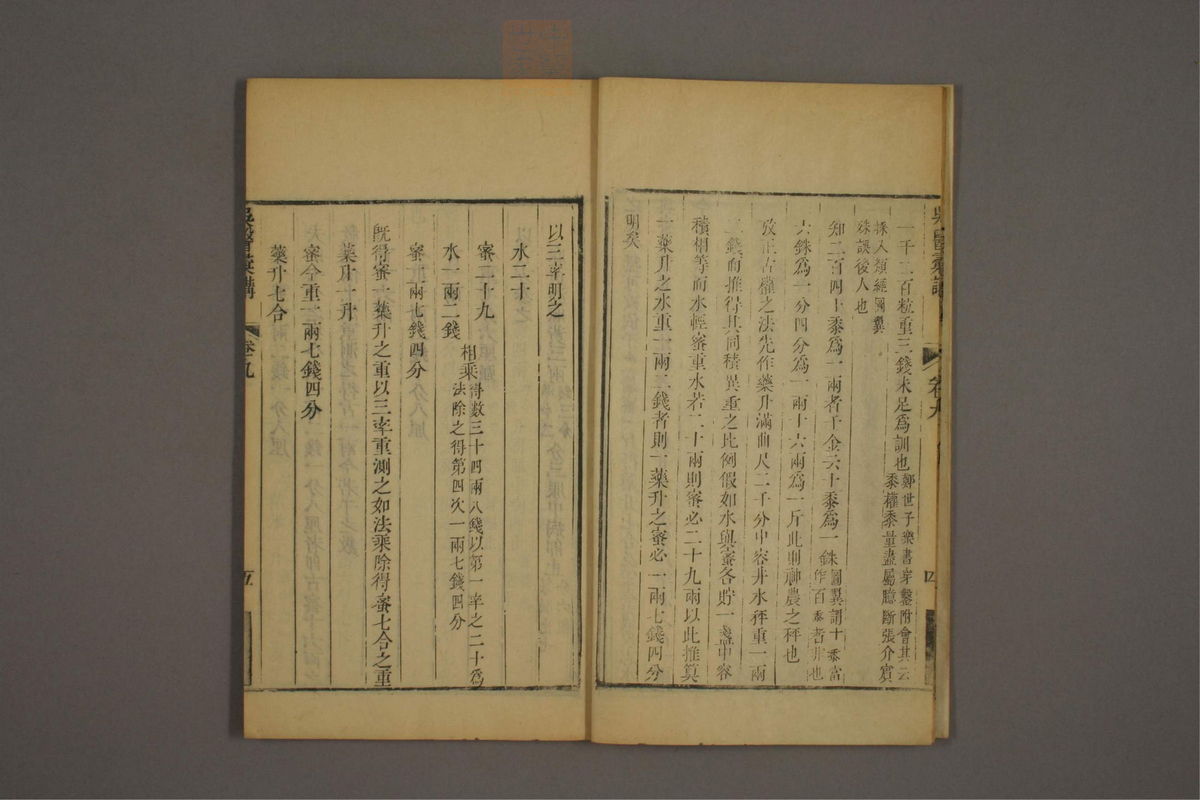 一千二百粒重三錢未足為訓也鄭世子樂書穿鑿附會其云
黍權黍量盡屬臆斷張介賓
採入類經圖翼
殊誤後人也
知二百四十黍為一兩者千金云十黍為一銖圖翼謂十黍當
作百黍者非也
六銖為一分四分為一兩十六兩為一斤此則神農之秤也
攷正古權之法先作藥升滿曲尺二千分中容井水秤重一兩
二錢而推得其同積異重之比例假如水與蜜各貯一盞中容
積相等而水輕蜜重水若二十兩則蜜必二十九兩以此推算
一藥升之水重一兩二錢者則一藥升之蜜必一兩七錢四分
明矣
卷九
四
以三率明之
水二十
蜜二十九
水一兩二錢
相乘得數三十四兩八錢以第一率之二十為
法除之得第四次一兩七錢四分
蜜一兩七錢四分
既得蜜一藥升之重以三率重測之如法乘除得蜜七合之重
藥升一升
蜜今重一兩七錢四分
藥升七合
吳醫彙講
卷九
五